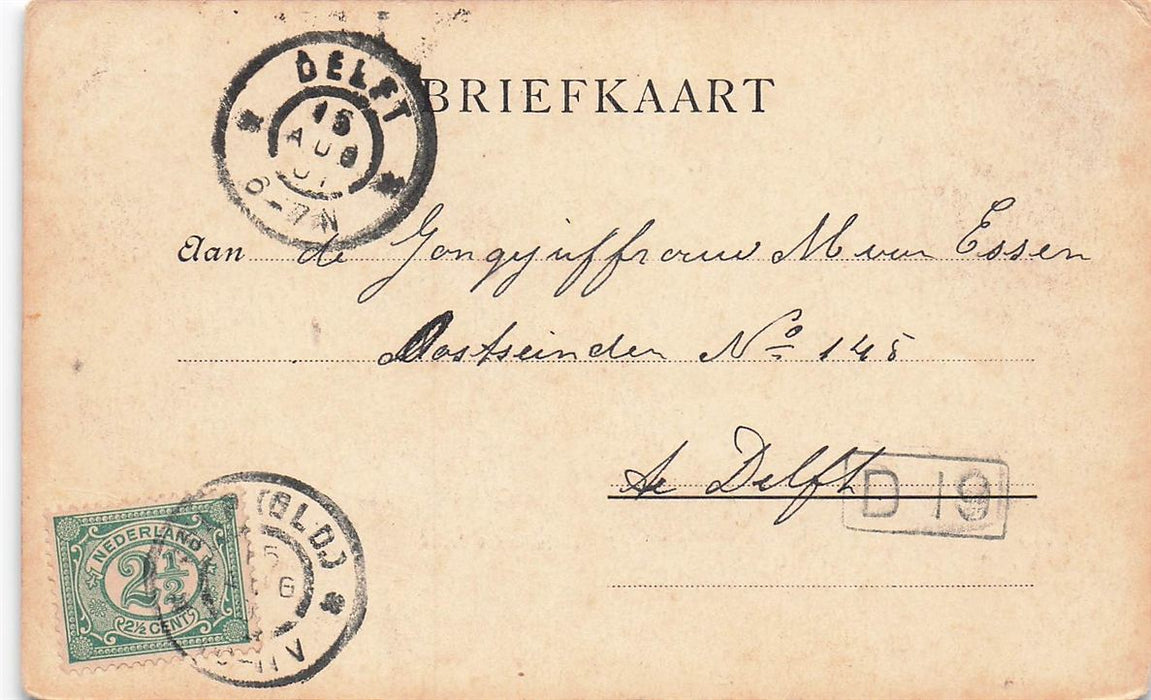 DELFT
16
AUG
01
6-7N
BRIEFKAART
Aan de Jongejuffrouw M van Essen
Oostseinden No 145
te Delft
D 19
(GLD.)
NEDERLAND
2 1/2
2½ CENT